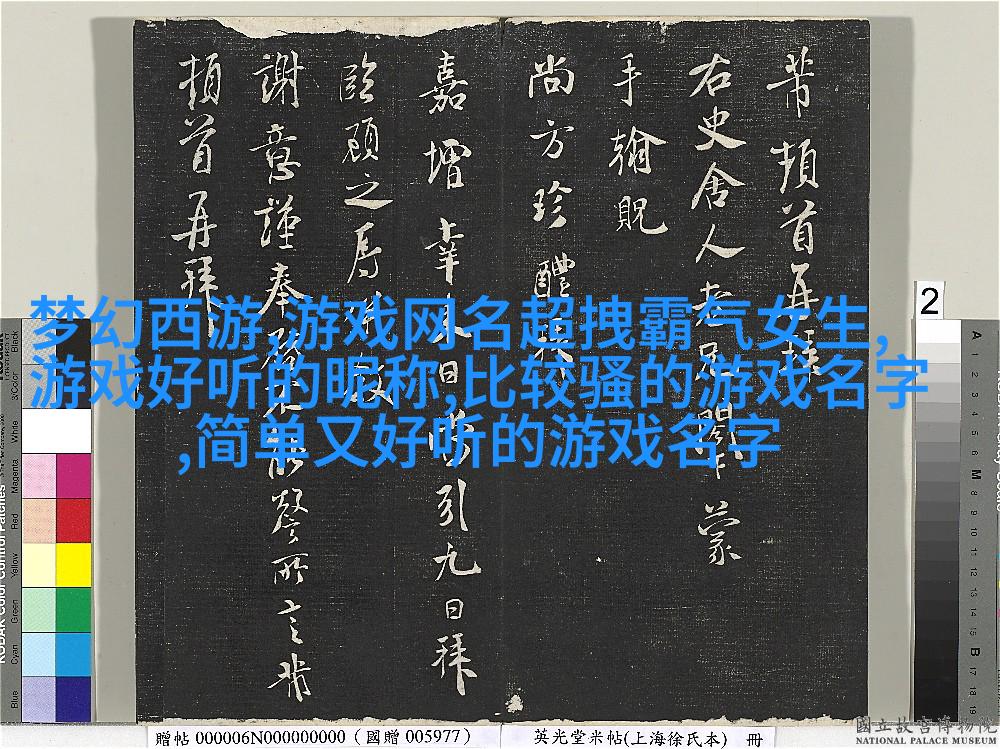 芾頓首再
右史舍人老兄閣蒙
手翰貺
尚方珍醴
嘉增幸日引九日拜
臨顧之
謝意謹奉所言芾
頓首再拜
梦幻西游,游戏网名超拽霸气女生,
游戏好听的昵称,比较骚的游戏名字
,简单又好听的游戏名字
2
3/Color
Black
White
Magenta
Red
Yellow
Green
Cyan
Blue
A
M
B
贈帖 000006N000000000（國贈 005977）
英光堂米帖(上海徐氏本) 冊
國立故宮博物院
NATIONAL PALACE MUSEUM